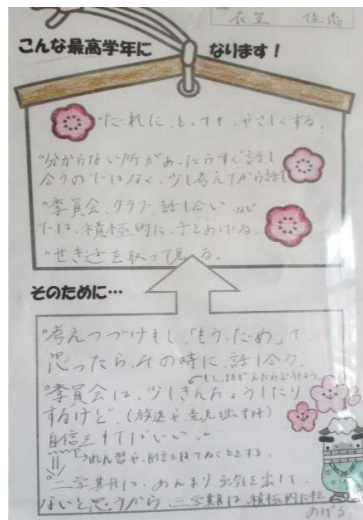 衣笠 佳忠
こんな最高学年に なります！
だれに、とっても、やさしくする。
°分からない所があったらすぐ話し
合うのではなく、少し考えてから話す
°委員会、クラブ、話し合い など
では、積極的に、手をあげる。
°せき
を取って
る。
そのために…
°考えつづけもし、「もう、だめ」って
思ったら、その時に、話し合う。
°委員会は、少しきんちょうしたり
するけど、(放送や意見出す時)
自信をもてばいい。
れん習や、自信を
とする。
°二学期に、あんまり元気を出して
ないと思うから、三学期は、積極的に手
あげる